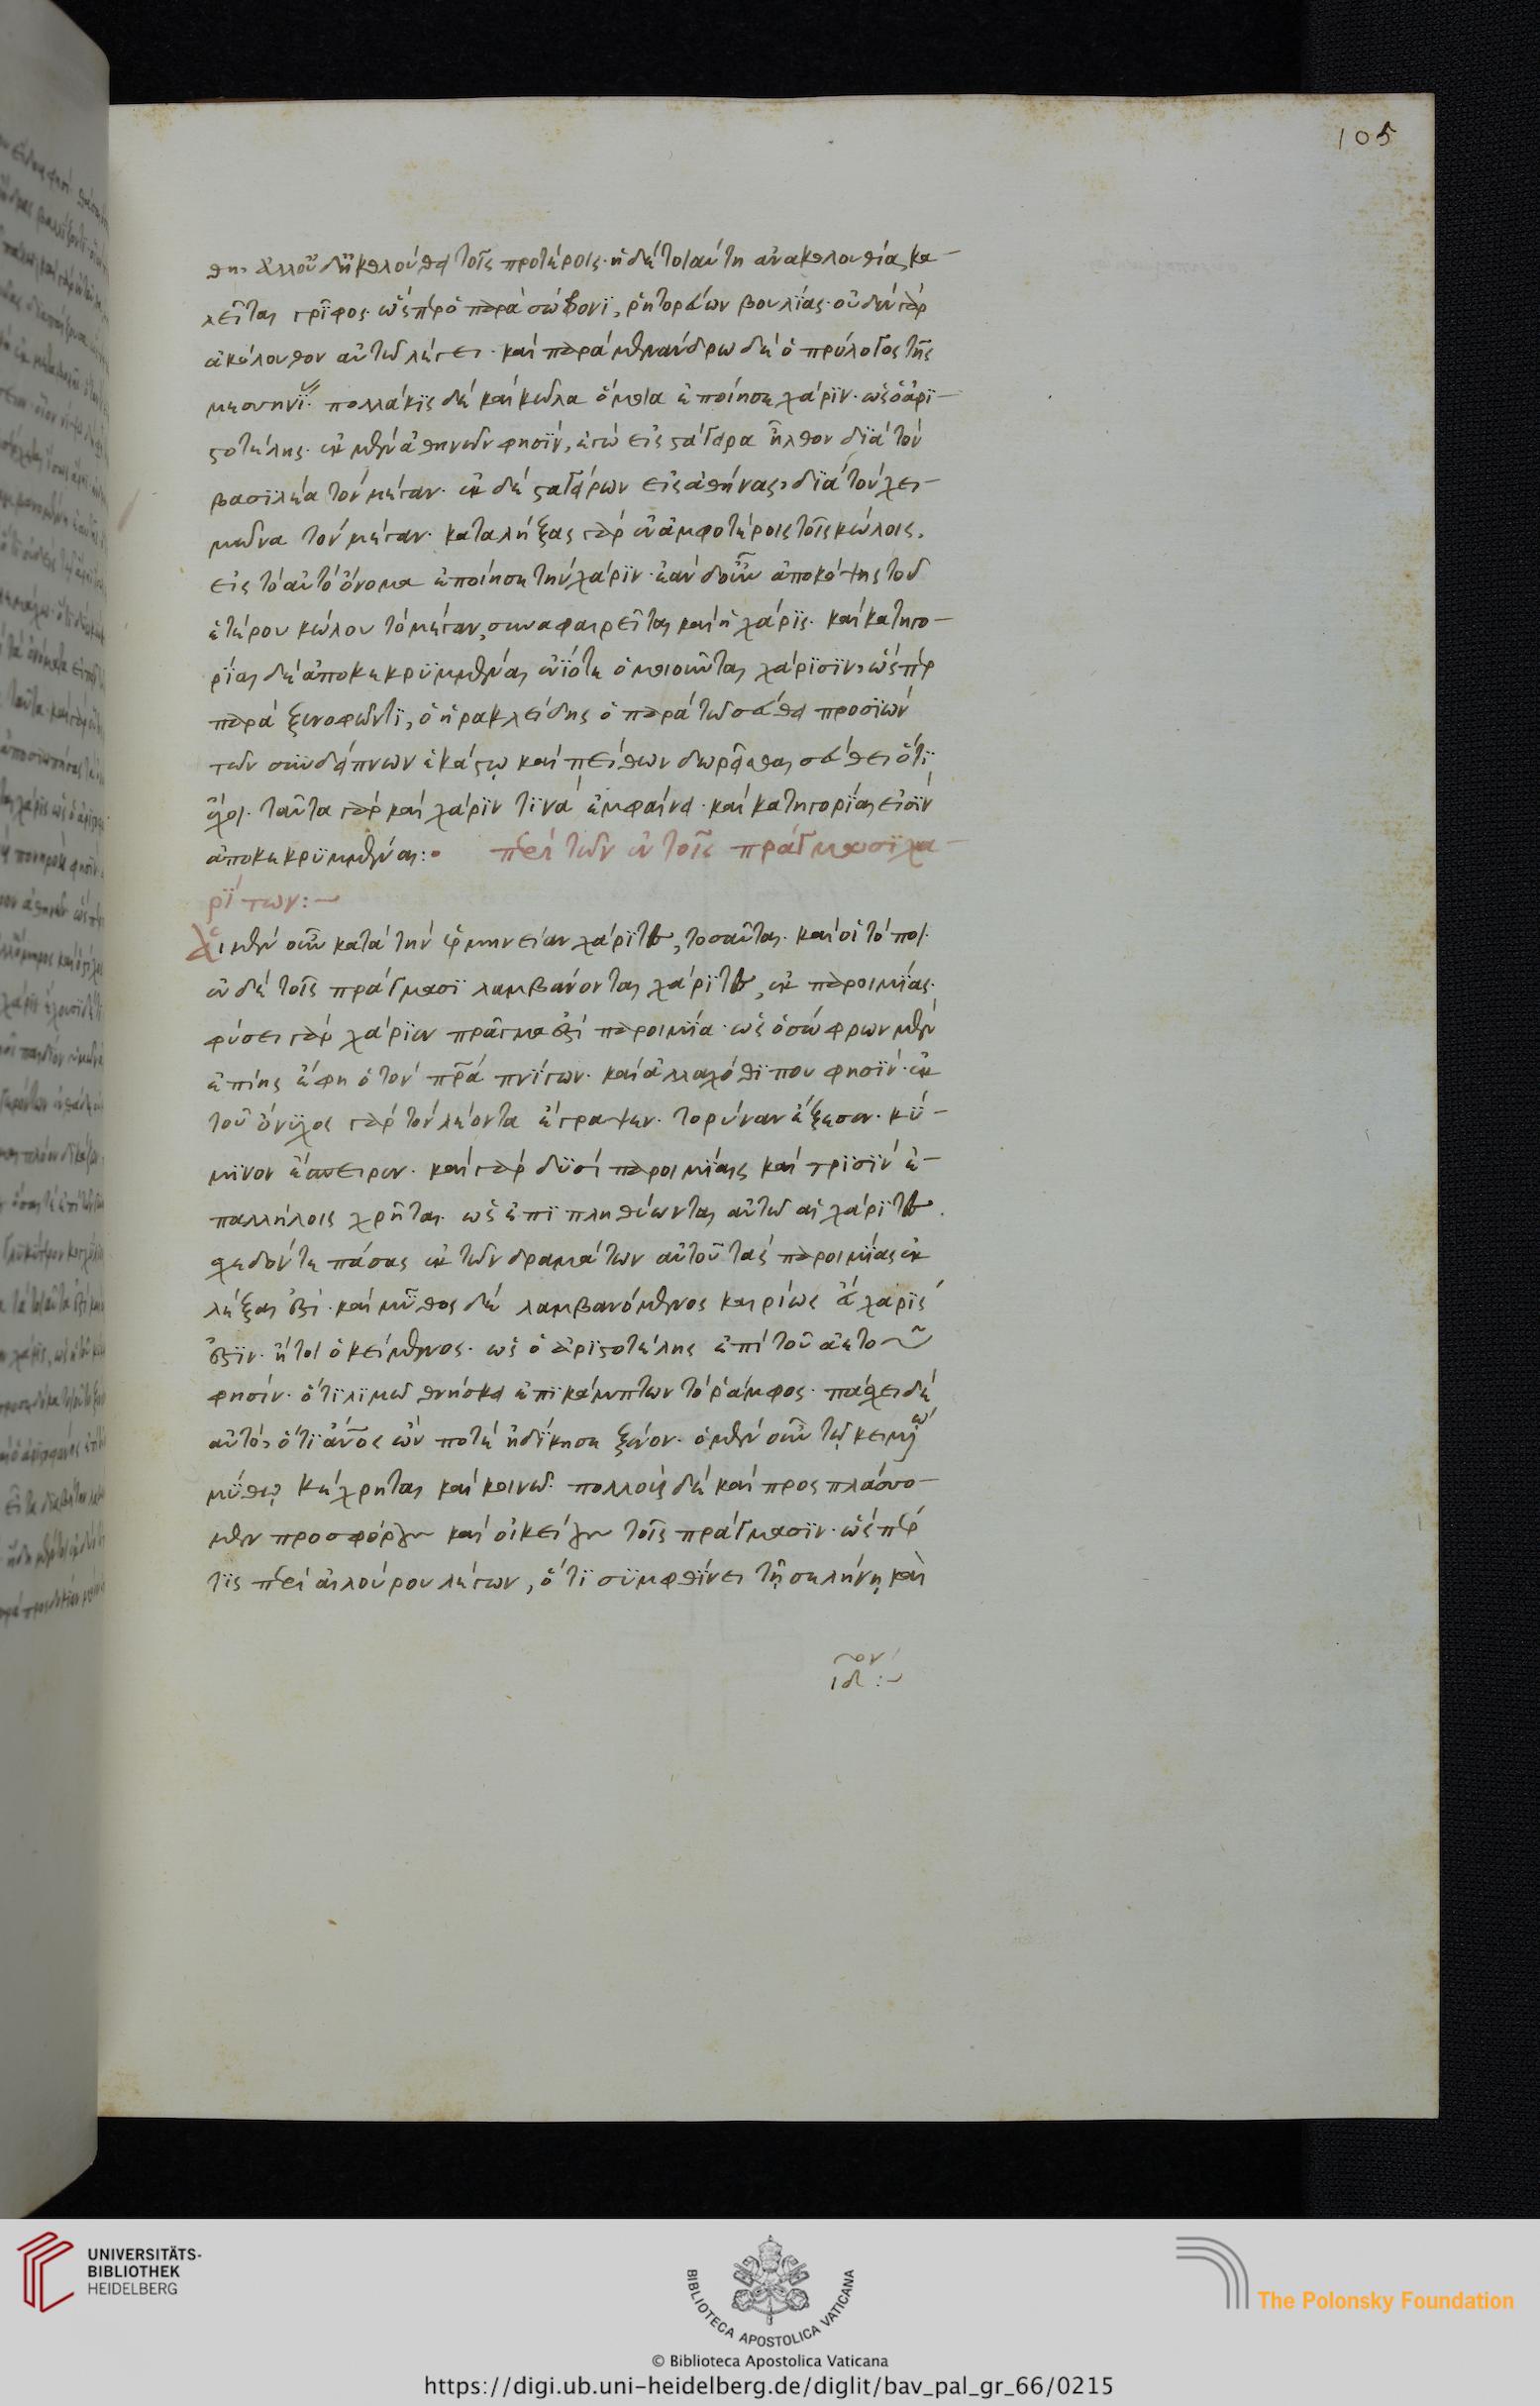 105
θη, ἀλλ' οὐδ' ἠκολούθει τοῖς προτέροις· ἡ δὲ τοιαύτη ἀνακολουθία, κα-
λεῖται γρῖφος· ὥσπερ ὁ παρὰ σώφρονι, ῥητορεύων βουλίας· οὐδὲν γὰρ
ἀκόλουθον αὐτῶ λέγει· καὶ παρὰ μενάνδρω δὲ ὁ πρόλογος τῆς
μεσηνΐ. πολλάκϊς δὲ καὶ κῶλα ὅμοια ἐποίησε χάρϊν· ὡς ὁ ἀρϊ-
στοτέλης· ἐκ μὲν ἀθηνῶν φησϊν, ἐγὼ εἰς στάγειρα ἦλθον δϊὰ τὸν
βασιλέα τὸν μέγαν· ἐκ δὲ σταγείρων εἰς ἀθήνας, δϊὰ τὸν χει-
μῶνα τὸν μέγαν· καταλήξας γὰρ ἐν ἀμφοτέροις τοῖς κώλοις,
εἰς τὸ αὐτὸ ὄνομα ἐποίησε τὴν χάρϊν· ἐὰν δ' οὖν ἀποκόψης τοῦ
ἑτέρου κώλου τὸ μέγαν, συναφαιρεῖται καὶ ἡ χάρϊς· καὶ κατηγο-
ρίαι δὲ ἀποκεκρϋμμέναι ἐνίοτε ὁμοιοῦνται χάρϊσϊν, ὥσπερ
παρὰ ξενοφῶντϊ, ὁ ἡρακλείδης ὁ παρὰ τῶ σεύθει προσϊὼν
τῶν συνδείπνων ἑκάστω καὶ πείθων δωρεῖσθαι σεύθει ὅτϊ
ἔχοι· ταῦτα γὰρ καὶ χάρϊν τϊνὰ ἐμφαίνει· καὶ κατηγορίαι εἰσϊν
ἀποκεκρϋμμέναι:· περὶ τῶν ἐν τοῖς πράγμασϊ χα-
ρΐτων:-
Αἱ μὲν οὖν κατὰ τὴν ἑρμηνείαν χάρϊτες, τοσαῦται· καὶ οἱ τόποι·
ἐν δὲ τοῖς πράγμασϊ λαμβάνονται χάρϊτες, ἐκ παροιμίας·
φύσει γὰρ χάρϊεν πρᾶγμα ἐστὶ παροιμΐα· ὡς ὁ σώφρων μὲν
ἐπίης ἔφη ὁ τὸν πρᾶ πνίγων· καὶ ἀλλαχόθϊ που φησϊν· ἐκ
τοῦ ὄνϋχος γὰρ τὸν λέοντα ἔγραψεν· τορύναν ἔξεσεν· κϋ-
μϊνον ἔσπειρεν· καὶ γὰρ δϋσὶ παροιμΐαις καὶ τρϊσϊν ἐ-
παλλήλοις χρῆται· ὡς ἐπϊπληθύωνται αὐτῶ αἱ χάρϊτες.
σχεδόν τε πάσας ἐκ τῶν δραμάτων αὐτοῦ τὰς παροιμΐας ἐκ
λέξαι ἐστὶ· καὶ μῦθος δὲ λαμβανόμενος καιρίως εὔχαρϊς
ἐστϊν· ἤτοι ὁ κείμενος· ὡς ὁ ἀρϊστοτέλης ἐπὶ τοῦ ἀετοῦ
φησίν· ὅτϊ λϊμῶ θνήσκει ἐπϊκάμπτων τὸ ῥάμφος· πάσχει δὲ
αὐτὸ, ὅτϊ ἄνος ὢν ποτὲ ἠδίκησε ξένον· ὁ μὲν οὖν τῶ κειμένω
μύθω κέχρηται καὶ κοινῶ· πολλοὺς δὲ καὶ προσπλάσσο-
μεν προσφόρους καὶ οἰκείους τοῖς πράγμασϊν· ὥσπερ
τϊς περὶ αἰλούρου λέγων, ὅτϊ σϋμφθϊνει τῆ σελήνη καὶ
ον
ιδ :-
UNIVERSITÄTS-
BIBLIOTHEK
HEIDELBERG
BIBLIOTECA APOSTOLICA VATICANA
The Polonsky Foundation
© Biblioteca Apostolica Vaticana
https://digi.ub.uni-heidelberg.de/diglit/bav_pal_gr_66/0215